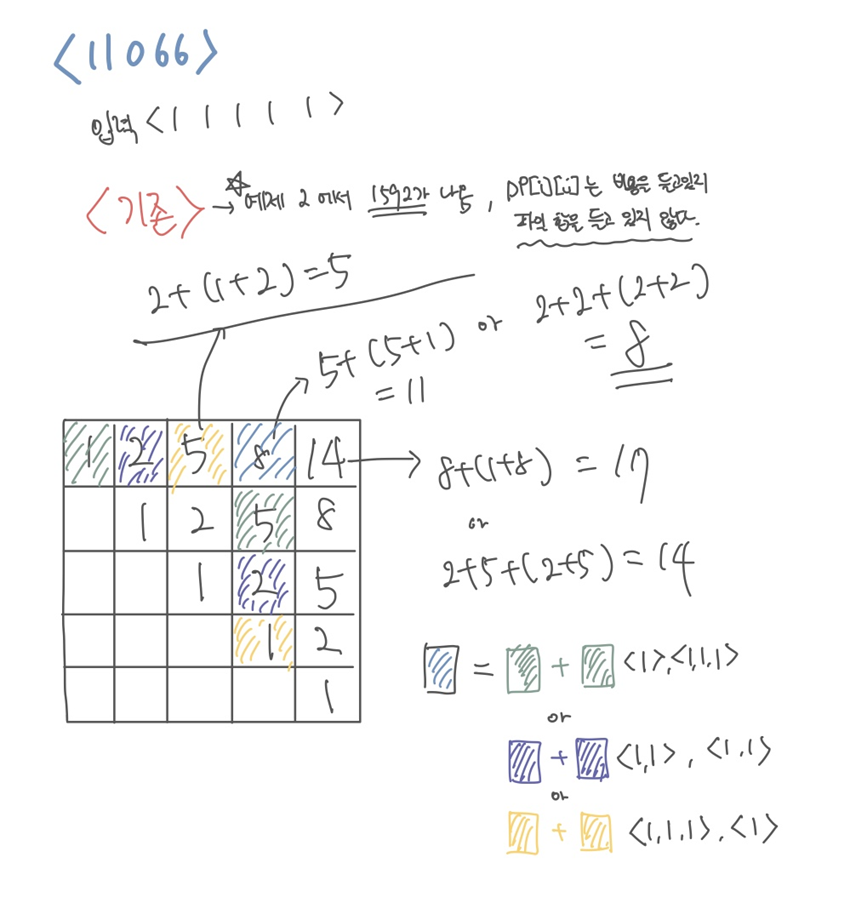 <11066>
입력 <1 1 1 1 1>
<기존> → ☆ 예제 2 에서 1592가 나옴, DP[i][j]는 비용을 들고있지
파일 합을 들고 있지 않다.
2+(1+2)=5
5+(5+1)
=11
or
2+2+(2+2)
= 8
1 2 5 8 14
1 2 5 8
1 2 5
1 2
1
8+(1+8) = 17
or
2+5+(2+5)=14
= + <1>,<1,1,1>
or
+ <1,1>, <1,1>
or
+ <1,1,1>,<1>